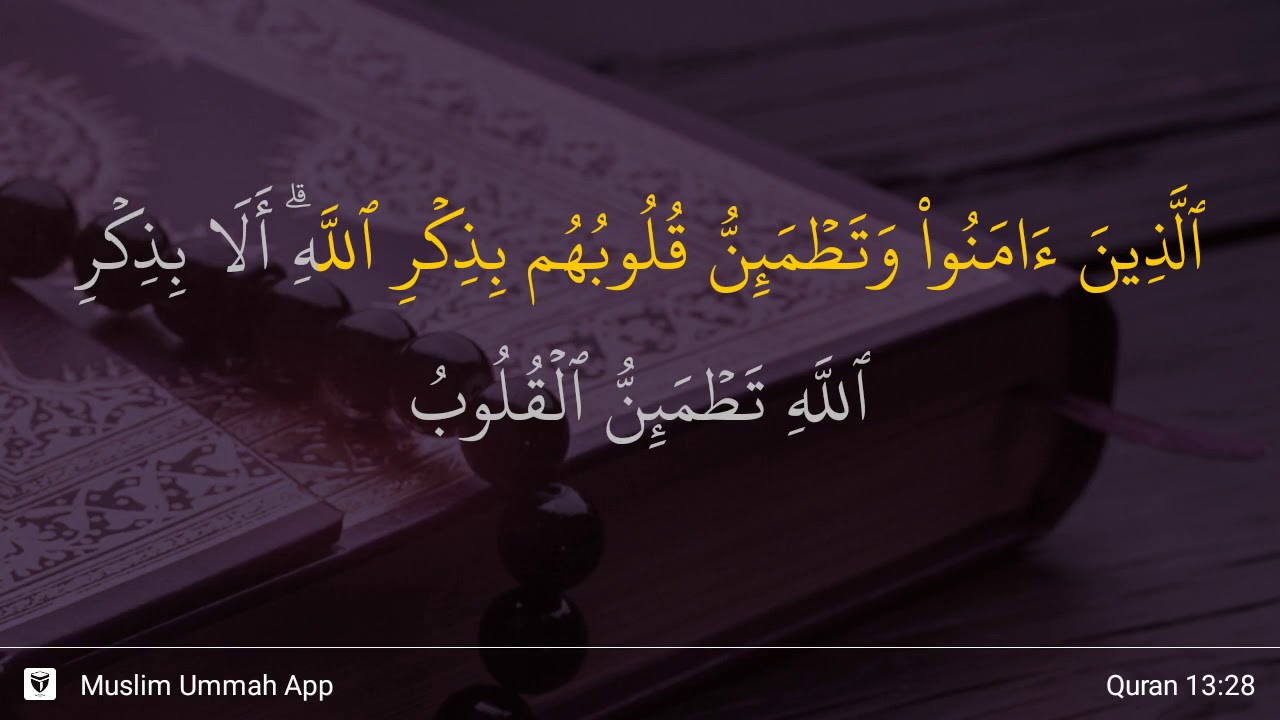 ٱلَّذِينَ ءَامَنُوا۟ وَتَطْمَئِنُّ قُلُوبُهُم بِذِكْرِ ٱللَّهِ ۗ أَلَا بِذِكْرِ
ٱللَّهِ تَطْمَئِنُّ ٱلْقُلُوبُ
Muslim Ummah App
Quran 13:28